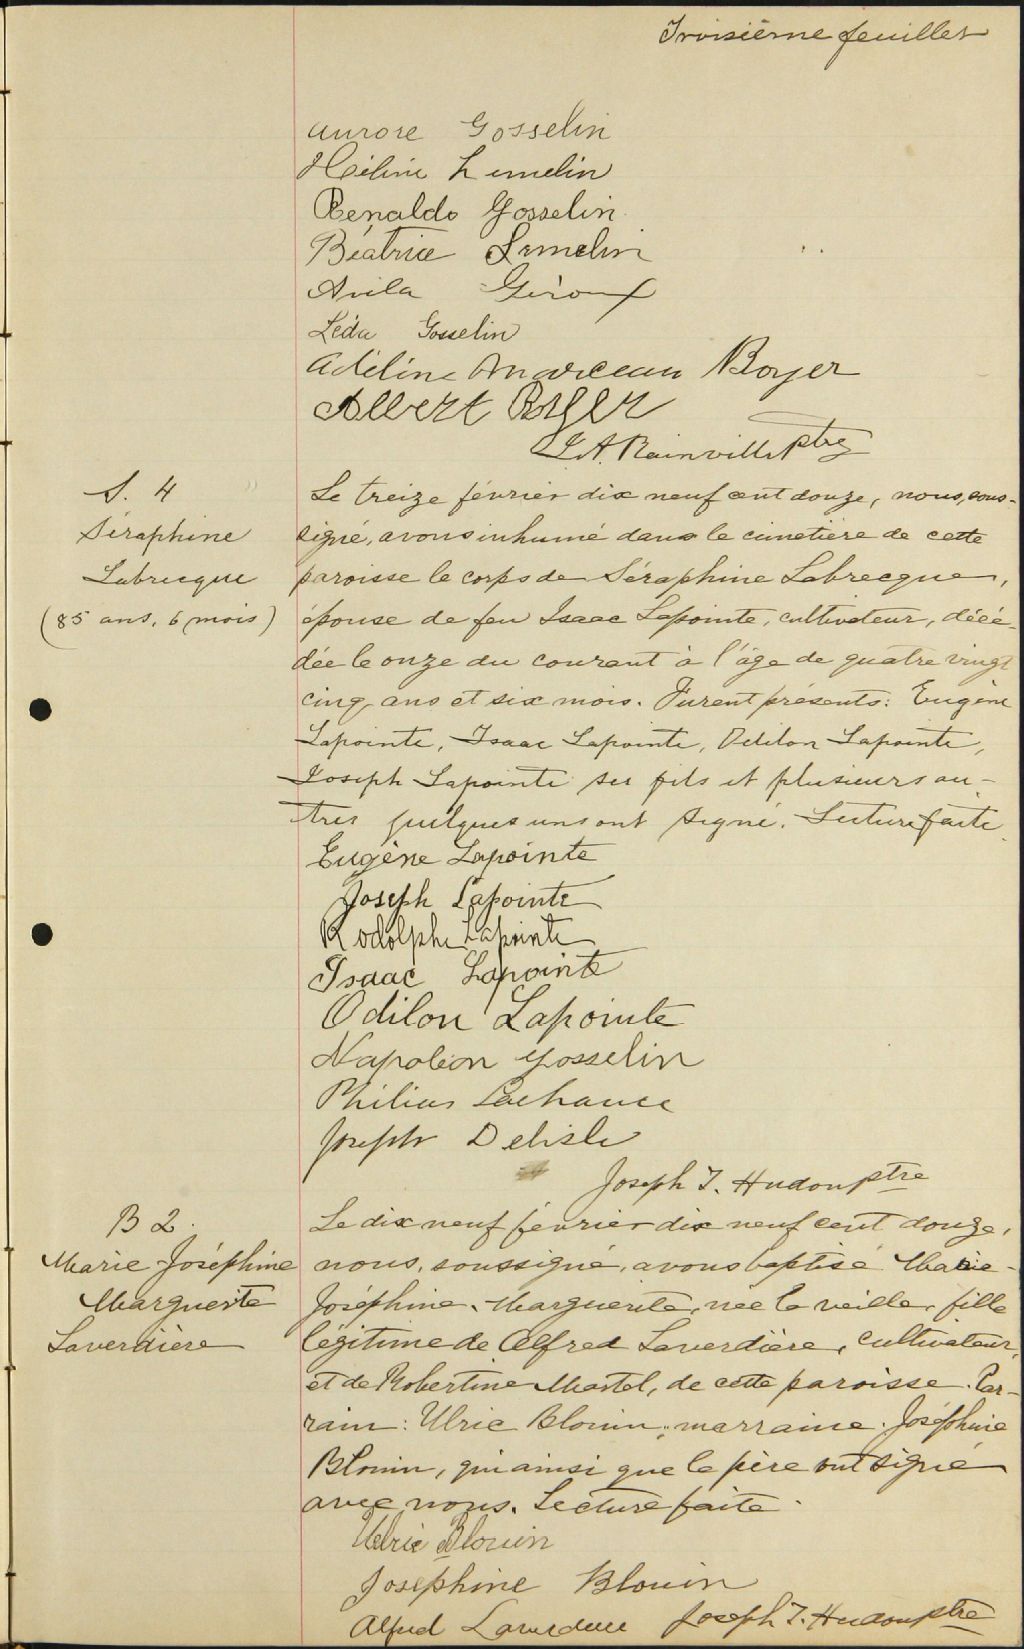 Troisième feuillet
Aurore Gosselin
Hélène Lemelin
Rénaldo Gosselin
Béatrice Lemelin
Avila Giroux
Léda Gosselin
Adéline Marceau Boyer
Albert Boyer
J. A. Rainville ptre
S. 4
Séraphine
Labrecque
(85 ans, 6 mois)
Le treize février dix neuf cent douze, nous, sous-
signé, avons inhumé dans le cimetière de cette
paroisse le corps de Séraphine Labrecque,
épouse de feu Isaac Lapointe, cultivateur, décé-
dée le onze du courant à l'âge de quatre vingt
cinq ans et six mois. Furent présents: Eugène
Lapointe, Isaac Lapointe, Odilon Lapointe,
Joseph Lapointe ses fils et plusieurs au-
tres quelques uns ont signé. Lecture faite.
Eugène Lapointe
Joseph Lapointe
Rodolphe Lapointe
Isaac Lapointe
Odilon Lapointe
Napoléon Gosselin
Philias Lachance
Joseph Delisle
Joseph T. Hudon ptre
B 2.
Marie Joséphine
Marguerite
Laverdière
Le dix neuf février dix neuf cent douze,
nous, soussigné, avons baptisé Marie-
Joséphine-Marguerite, née la veille, fille
légitime de Alfred Laverdière, cultivateur,
et de Robertine Martel, de cette paroisse. Par-
rain: Ulric Blouin; marraine: Joséphine
Blouin, qui ainsi que le père ont signé
avec nous. Lecture faite.
Ulric Blouin
Josephine Blouin
Alfred Laverdière Joseph T. Hudon ptre